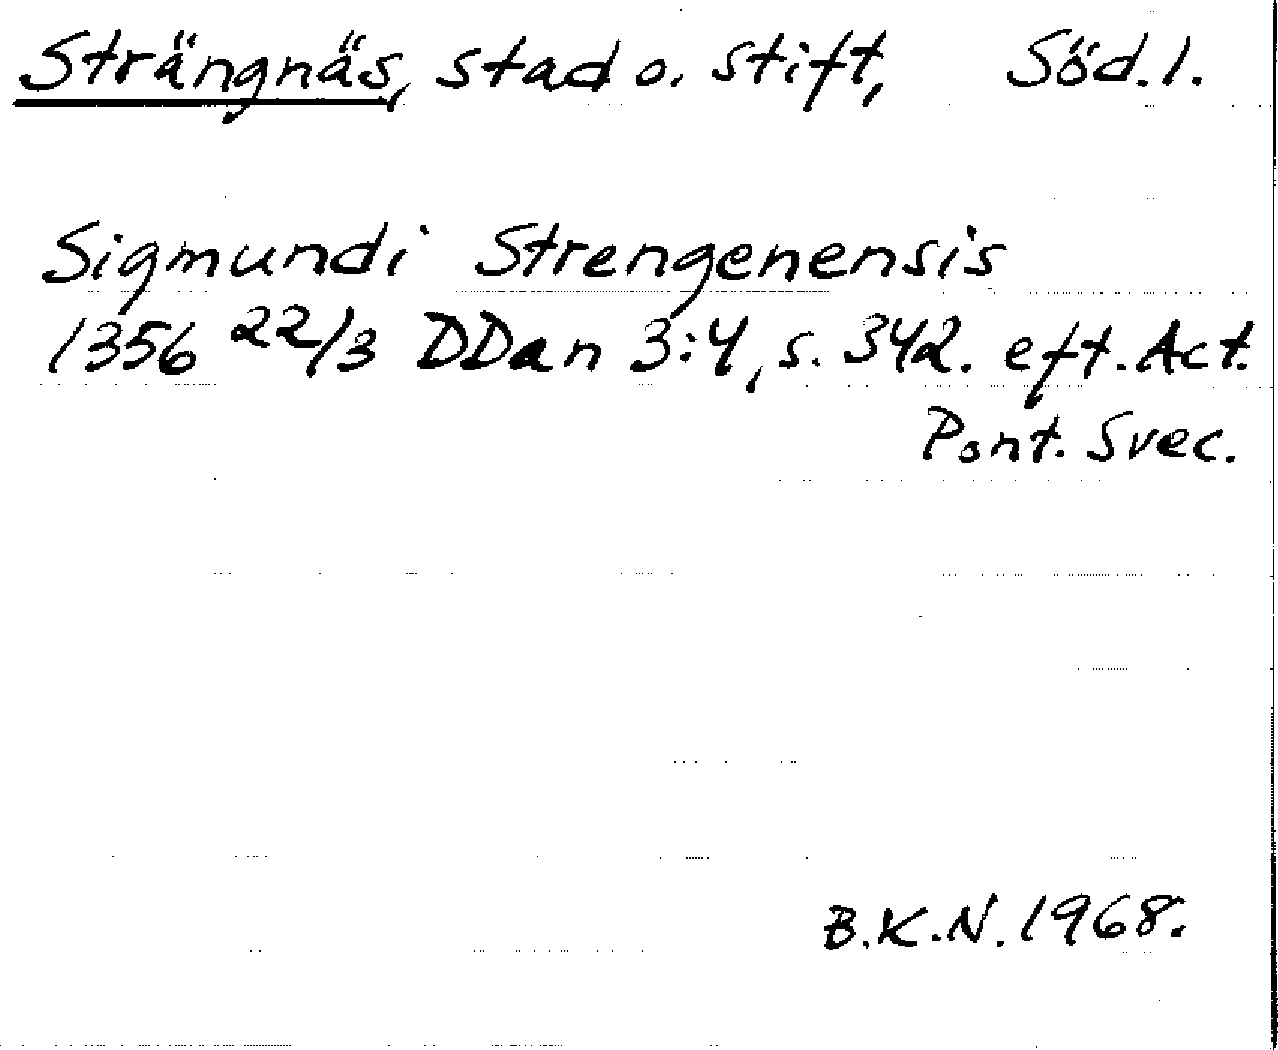 Strängnäs, stad o. stift, Söd. l.
Sigmundi Strengenensis
1356 22/3 DDan 3:4, s. 342. eft. Act.
Pont. Svec.
B.K.N. 1968.